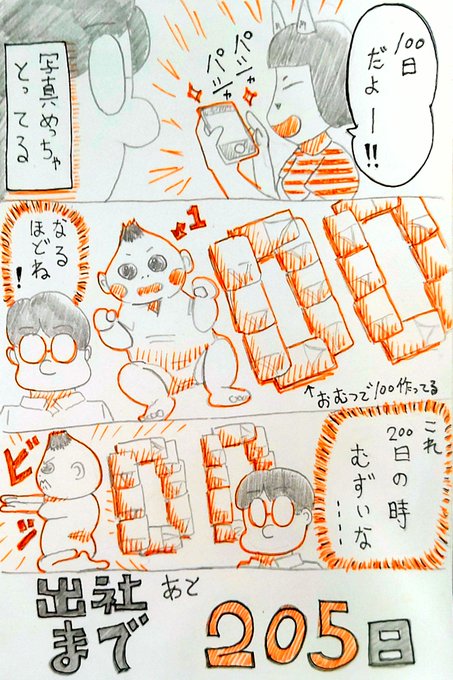 100日
だよー!!
パシャ
パシャ
写真めっちゃ
とってる
なる
ほどね
!
1
↑おむつで100作ってる
これ
200日の時
むずいな
----
ビシ
出社
まで
あと
205日